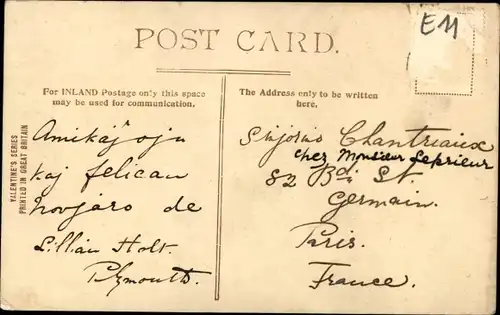 POST CARD.
E11
For INLAND Postage only this space
may be used for communication.
The Address only to be written
here.
VALENTINE'S SERIES
PRINTED IN GREAT BRITAIN
kaj felican
novjaro de
Lillian Holt.
Plymouth.
Sinjorino Chantreaux
chez Monsieur Leprieur
82 Bd. St.
Germain.
Paris.
France.